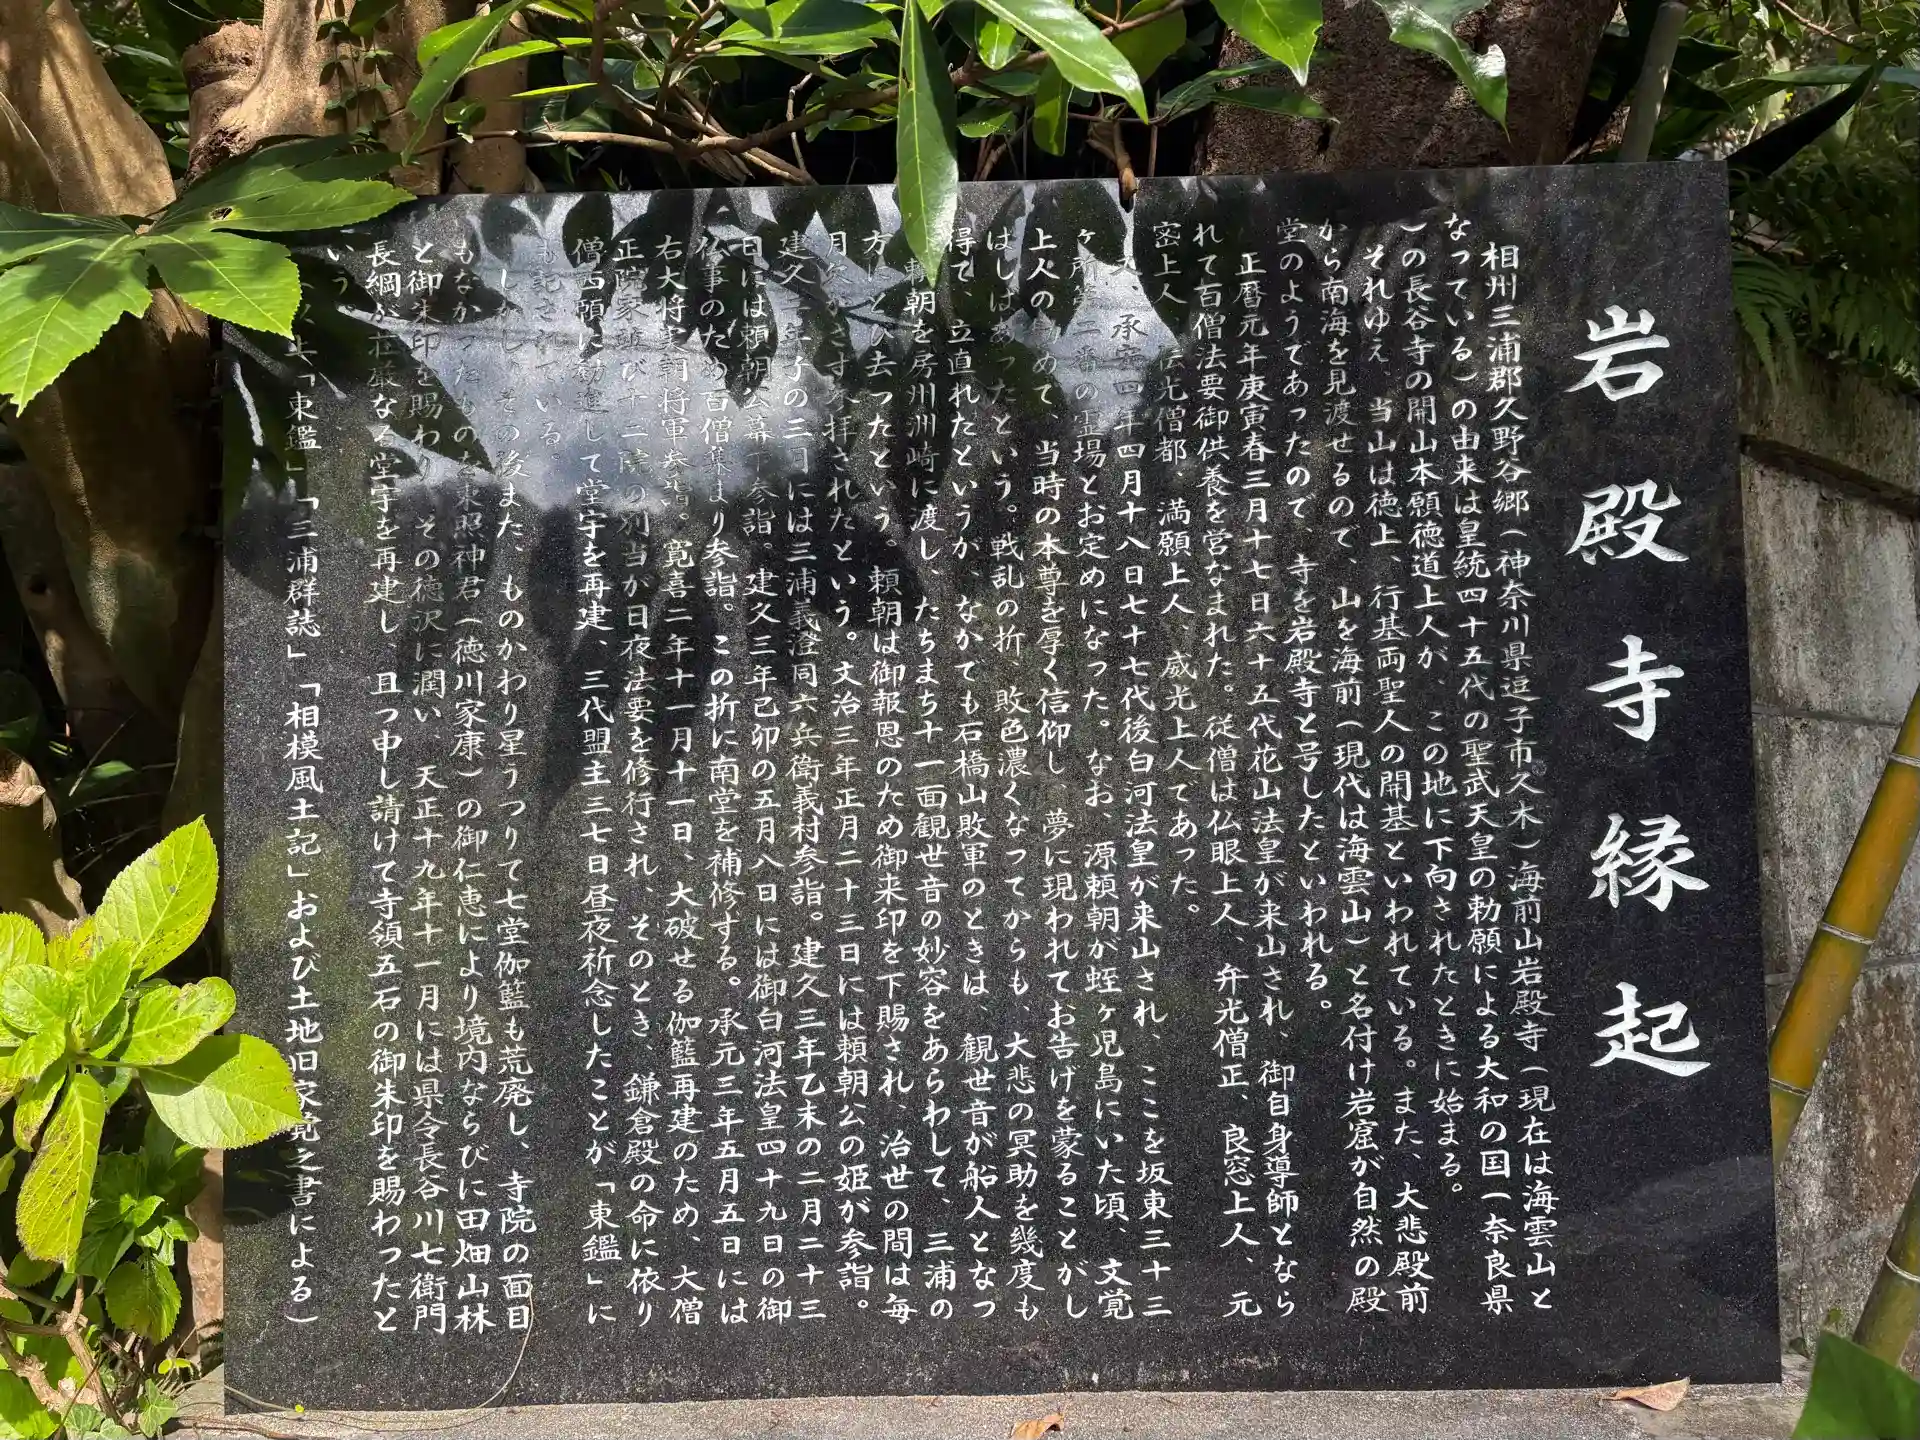 岩殿寺縁起
相州三浦郡久野谷郷(神奈川県逗子市久木)海前山岩殿寺(現在は海雲山と
なっている)の由来は皇統四十五代の聖武天皇の勅願による大和の国(奈良県
)の長谷寺の開山本願徳道上人が、この地に下向されたときに始まる。
それゆえ、当山は徳上、行基両聖人の開基といわれている。また、大悲殿前
から南海を見渡せるので、山を海前(現代は海雲山)と名付け岩窟が自然の殿
堂のようであったので、寺を岩殿寺と号したといわれる。
正暦元年庚寅春三月十七日六十五代花山法皇が来山され、御自身導師となら
れて百僧法要御供養を営なまれた。従僧は仏眼上人、弁光僧正、良窓上人、元
密上人、伝光僧都、満願上人、威光上人であった。
又、承安四年四月十八日七十七代後白河法皇が来山され、ここを坂東三十三
ヶ所第二番の霊場とお定めになった。なお、源頼朝が蛭ヶ児島にいた頃、文覚
上人の勧めて、当時の本尊を厚く信仰し、夢に現われてお告げを蒙ることがし
ばしばあったという。戦乱の折、敗色濃くなってからも、大悲の冥助を幾度も
得て、立直れたというが、なかでも石橋山敗軍のときは、観世音が船人となっ
頼朝を房州洲崎に渡し、たちまち十一面観世音の妙容をあらわして、三浦の
方にとび去ったという。頼朝は御報恩のため御来印を下賜され、治世の間は毎
月欠かさず参拝されたという。文治三年正月二十三日には頼朝公の姫が参詣。
建久二年子の三日には三浦義澄同六兵衛義村参詣。建久三年乙未の二月二十三
日には頼朝公幕下参詣。建久三年己卯の五月八日には御白河法皇四十九日の御
仏事のため百僧集まり参詣。この折に南堂を補修する。承元三年五月五日には
右大将実朝将軍参詣。寛喜二年十一月十一日、大破せる伽籃再建のため、大僧
正院家並び十二院の別当が日夜法要を修行され、そのとき、鎌倉殿の命に依り
僧西願に勧進して堂宇を再建、三代盟主三七日昼夜祈念したことが「東鑑」に
も記されている。
しかし、その後また、ものかわり星うつりて七堂伽籃も荒廃し、寺院の面目
もなかったものを東照神君(徳川家康)の御仁恵により境内ならびに田畑山林
と御朱印を賜わり、その徳沢に潤い、天正十九年十一月には県令長谷川七衛門
長綱が荘厳なる堂宇を再建し、且つ申し請けて寺領五石の御朱印を賜わったと
いう。
(以上「東鑑」「三浦群誌」「相模風土記」および土地旧家覚之書による)